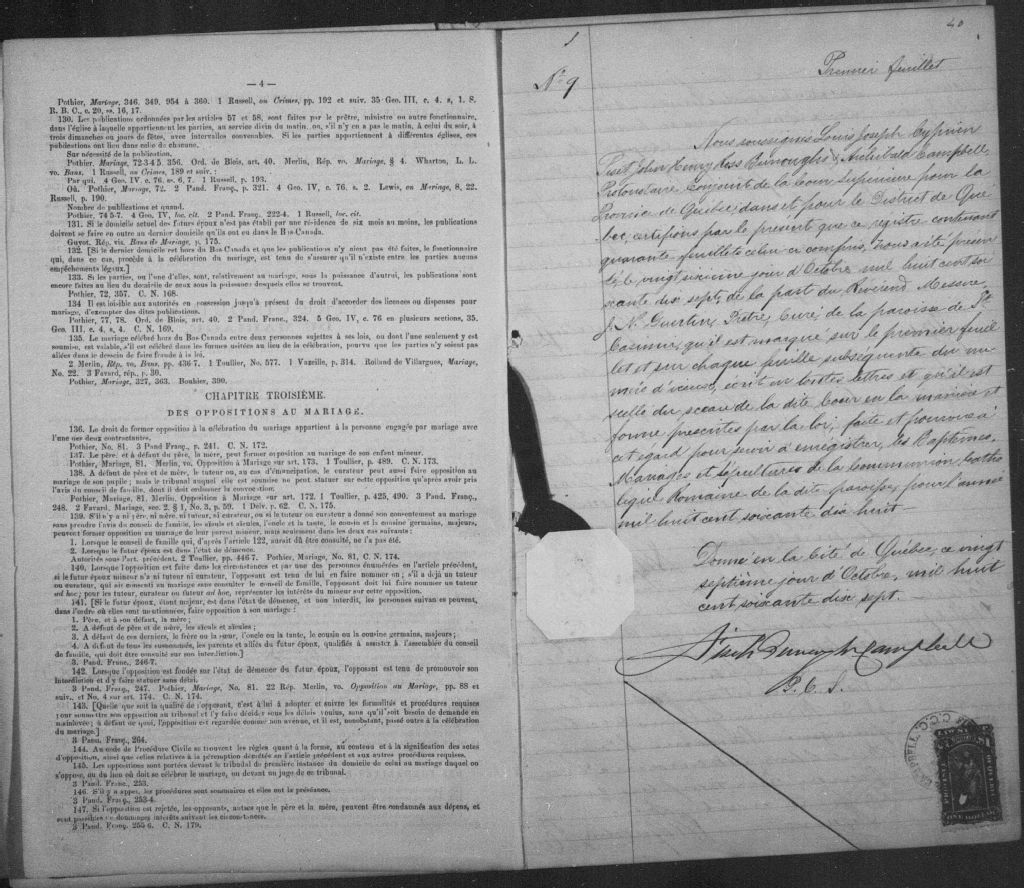 — 4 —
Pothier, Mariage, 346. 349. 954 à 360. 1 Russell, on Crimes, pp. 192 et suiv. 35 Geo. III, c. 4, s, 1. S.
R. B. C., c. 20, ss. 16, 17.
130. Les publications ordonnées par les articles 57 et 58, sont faites par le prêtre, ministre ou autre fonctionnaire,
dans l'église à laquelle appartiennent les parties, au service divin du matin, ou, s'il n'y en a pas le matin, à celui du soir, à
trois dimanches ou jours de fêtes, avec intervalles convenables. Si les parties appartiennent à différentes églises, ces
publications ont lieu dans celle de chacune.
Sur nécessité de la publication.
Pothier, Mariage, 72-3-4 5 356. Ord. de Blois, art. 40. Merlin, Rép. vo. Mariage, § 4. Wharton, L. L.
vo. Bans. 1 Russell, on Crimes, 189 et suiv. :
Par qui. 4 Geo. IV, c. 76, ss. 6, 7. 1 Russell, p. 193.
Où. Pothier, Mariage, 72. 2 Pand. Franç., p. 321. 4 Geo. IV, c. 76, s. 2. Lewis, on Marriage, 8, 22.
Russell, p. 190.
Nombre de publications et quand.
Pothier, 74 5-7. 4 Geo. IV, loc. cit. 2 Pand. Franç., 222-4. 1 Russell, loc. cit.
131. Si le domicile actuel des futurs époux n'est pas établi par une résidence de six mois au moins, les publications
doivent se faire en outre au dernier domicile qu'ils ont eu dans le Bas Canada.
Guyot, Rép. vis. Bans de Mariage, p. 175.
132. [Si le dernier domicile est hors du Bas Canada et que les publications n'y aient pas été faites, le fonctionnaire
qui, dans ce cas, procède à la célébration du mariage, est tenu de s'assurer qu'il n'existe entre les parties aucuns
empêchements légaux.]
133. Si les parties, ou l'une d'elles, sont, relativement au mariage, sous la puissance d'autrui, les publications sont
encore faites au lieu du domicile de ceux sous la puissance desquels elles se trouvent.
Pothier, 72, 357. C. N. 168.
134 Il est loisible aux autorités en possession jusqu'à présent du droit d'accorder des licences ou dispenses pour
mariage, d'exempter des dites publications.
Pothier, 77, 78. Ord. de Blois, art. 40. 2 Pand. Franç., 324. 5 Geo. IV, c. 76 en plusieurs sections, 35.
Geo. III, c. 4, s, 4. C. N. 169.
135. Le mariage célébré hors du Bas Canada entre deux personnes sujettes à ses lois, ou dont l'une seulement y est
soumise, est valable, s'il est célébré dans les formes usitées au lieu de la célébration, pourvu que les parties n'y soient pas
allées dans le dessein de faire fraude à la loi.
2 Merlin, Rép. vo. Bans, pp. 436-7. 1 Toullier, No. 577. 1 Vazeille, p. 314. Rolland de Villargues, Mariage,
No. 22. 3 Favard, rép., p. 30.
Pothier, Mariage, 327, 363. Bouhier, 390.
CHAPITRE TROISIÈME.
DES OPPOSITIONS AU MARIAGE.
136. Le droit de former opposition à la célébration du mariage appartient à la personne engagée par mariage avec
l'une des deux contractantes.
Pothier, No. 81. 3 Pand Franç., n. 241. C. N. 172.
137. Le père, et à défaut du père, la mère, peut former opposition au mariage de son enfant mineur.
Pothier, Mariage, 81. Merlin, vo. Opposition à Mariage sur art. 173. 1 Toullier, p. 489. C. N. 173.
138. A défaut de père et de mère, le tuteur ou, au cas d'émancipation, le curateur peut aussi faire opposition au
mariage de son pupille ; mais le tribunal auquel elle est soumise ne peut statuer sur cette opposition qu'après avoir pris
l'avis du conseil de famille, dont il doit ordonner la convocation.
Pothier, Mariage, 81. Merlin, Opposition à Mariage sur art. 172. 1 Toullier, p. 425, 490. 3 Pand. Franç.,
248. 2 Favard, Mariage, sec. 2, § 1, No. 3, p. 59. 1 Delv. p. 62. C. N. 175.
139. S'il n'y a ni père, ni mère, ni tuteur, ni curateur, ou si le tuteur ou curateur a donné son consentement au mariage
sans prendre l'avis du conseil de famille, les aïeuls et aïeules, l'oncle et la tante, le cousin et la cousine germains, majeurs,
peuvent former opposition au mariage de leur parent mineur, mais seulement dans les deux cas suivants :
1. Lorsque le conseil de famille qui, d'après l'article 122, aurait dû être consulté, ne l'a pas été.
2. Lorsque le futur époux est dans l'état de démence.
Autorités sous l'art. précédent. 2 Toullier, pp. 446-7. Pothier, Mariage, No. 81, C. N. 174.
140. Lorsque l'opposition est faite dans les circonstances et par une des personnes énumérées en l'article précédent,
si le futur époux mineur n'a ni tuteur ni curateur, l'opposant est tenu de lui en faire nommer un ; s'il a déjà un tuteur
ou curateur, qui ait consenti au mariage sans consulter le conseil de famille, l'opposant doit lui faire nommer un tuteur
ad hoc ; pour les tuteur, curateur ou tuteur ad hoc, représenter les intérêts du mineur sur cette opposition.
141. [Si le futur époux, étant majeur, est dans l'état de démence, et non interdit, les personnes suivantes peuvent,
dans l'ordre où elles sont mentionnées, faire opposition à son mariage :
1. Père, et à son défaut, la mère ;
2. A défaut de père et de mère, les aïeuls et aïeules ;
3. A défaut de ces derniers, le frère ou la sœur, l'oncle ou la tante, le cousin ou la cousine germains, majeurs ;
4. A défaut de tous les susnommés, les parents et alliés du futur époux, qualifiés à assister à l'assemblée du conseil
de famille, qui doit être consulté sur son interdiction.]
3. Pand. Franç., 246-7.
142. Lorsque l'opposition est fondée sur l'état de démence du futur époux, l'opposant est tenu de promouvoir son
interdiction et d'y faire statuer sans délai.
3 Pand. Franç., 247. Pothier, Mariage, No. 81. 22 Rép. Merlin, vo. Opposition au Mariage, pp. 88 et
suiv. et No. 4 sur art. 174. C. N. 174.
143. [Quelle que soit la qualité de l'opposant, c'est à lui à adopter et suivre les formalités et procédures requises
pour soumettre son opposition au tribunal et l'y faire décider sous les délais voulus, sans qu'il soit besoin de demande en
mainlevée ; à défaut de quoi, l'opposition est regardée comme non avenue, et il est, nonobstant, passé outre à la célébration
du mariage.]
3 Pand. Franç., 264.
144. Au code de Procédure Civile se trouvent les règles quant à la forme, au contenu et à la signification des actes
d'opposition, ainsi que celles relatives à la péremption décrétée en l'article précédent et aux autres procédures requises.
145. Les oppositions sont portées devant le tribunal de première instance du domicile de celui au mariage duquel on
s'oppose, ou du lieu où doit se célébrer le mariage, ou devant un juge de ce tribunal.
3 Pand. Franc., 253.
146. S'il y a appel, les procédures sont sommaires et elles ont la préséance.
3 Pand. Franç., 253-4.
147. Si l'opposition est rejetée, les opposants, autres que le père et la mère, peuvent être condamnés aux dépens, et
sont passibles de dommages intérêts suivant les circonstances.
3 Pand. Franç. 255-6. C. N. 179.
40
1
No. 9
Premier feuillet
Nous soussignés Louis Joseph Cyprien
Fiset John Henry Ross Burroughs & Archibald Campbell,
Protonotaire Conjoint de la Cour Supérieure pour la
Province de Québec, dans et pour le District de Qué
bec, certifions par le présent que ce registre contenant
quarante feuillets celui ci compris, nous a été présen
té le vingt sixième jour d'Octobre mil huit cent soi
xante dix sept, de la part du Révérend Messire
J. N. Guertin, Prêtre, Curé, de la paroisse de St.
Casimir, qu'il est marqué sur le premier feuil
let et sur chaque feuille subséquente du nu
méro d'iceux, écrit en toutes lettres et qu'il est
scellé du sceau de la dite Cour en la manière et
forme prescrites par la loi, faite et pourvue à
cet égard pour servir à enregistrer, les Baptêmes,
Mariages et sépultures de la Communion Catho
lique Romaine de la dite paroisse, pour l'année
mil huit cent soixante dix huit
Donné en la Cité de Québec, ce vingt
septième jour d'Octobre, mil huit
cent soixante dix sept.
Fiset Burroughs Campbell
P. C. S.
CAMPBELL
ONE DOLLAR